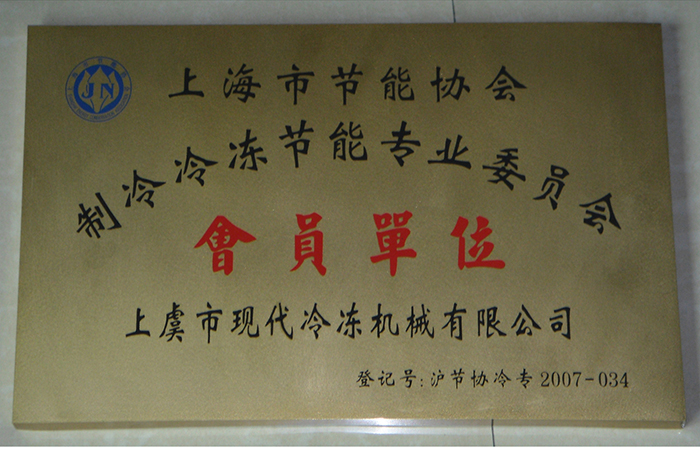 JN
上海市节能协会
制冷冷冻节能专业委员会
會員單位
上虞市现代冷冻机械有限公司
登记号:沪节协冷专2007-034